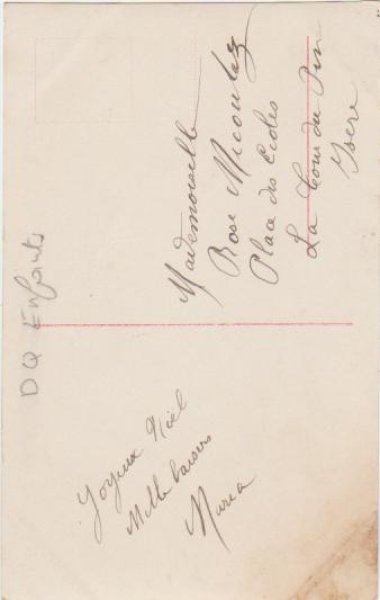 Joyeux Noël
Mille baisers
Maria
Mademoiselle
Rose Micoulez
Place des Ecoles
La Tour du Pin
Isère
DQ Enfants